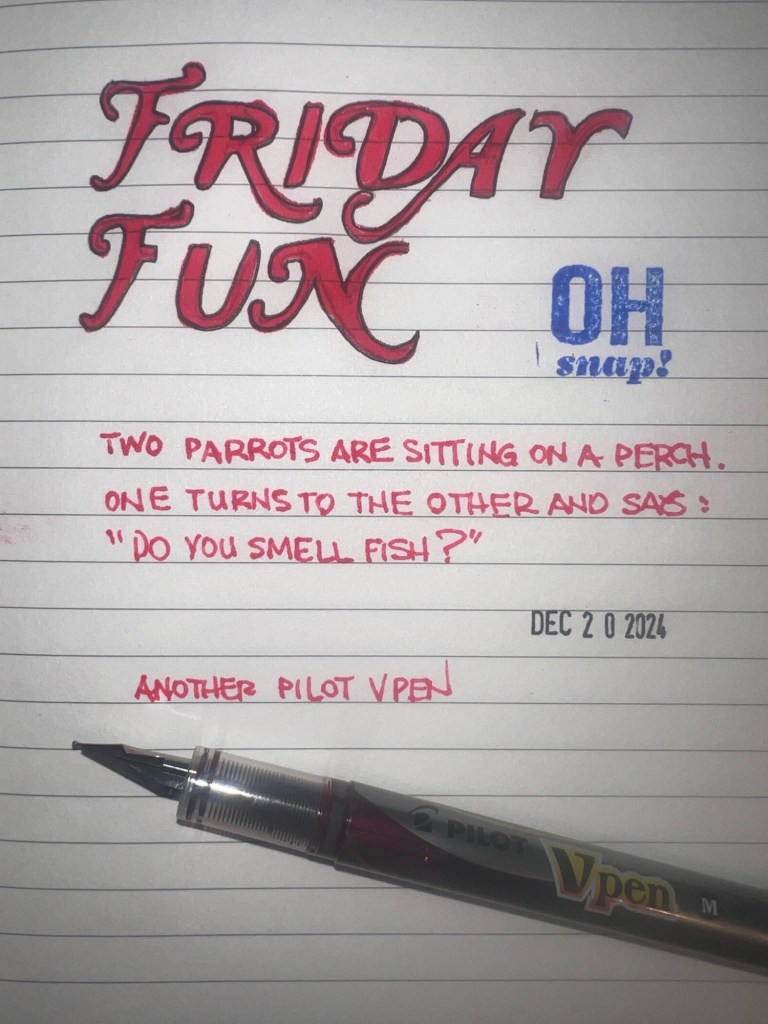 FRIDAY
FUN
OH
snap!
TWO PARROTS ARE SITTING ON A PERCH.
ONE TURNS TO THE OTHER AND SAYS:
"DO YOU SMELL FISH?"
DEC 20 2024
ANOTHER PILOT VPEN
PILOT Vpen M